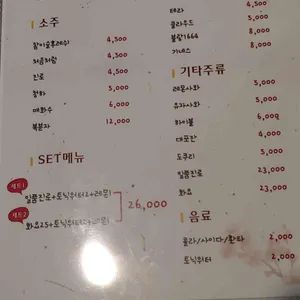 소주
참이슬후레쉬 4,500
처음처럼 4,500
진로 4,500
청하 5,000
매화수 6,000
복분자 12,000
SET메뉴
세트1
일품진로+토닉워터2+레몬1
세트2
화요25+토닉워터2+레몬1
26,000
4,500
테라 4,500
클라우드 5,000
블랑1664 8,000
기네스 8,000
기타주류
레몬사와 5,000
유자사와 5,000
하이볼 6,000
대포잔 4,000
도쿠리 5,000
일품진로 23,000
화요 23,000
음료
콜라/사이다/환타 2,000
토닉워터 2,000